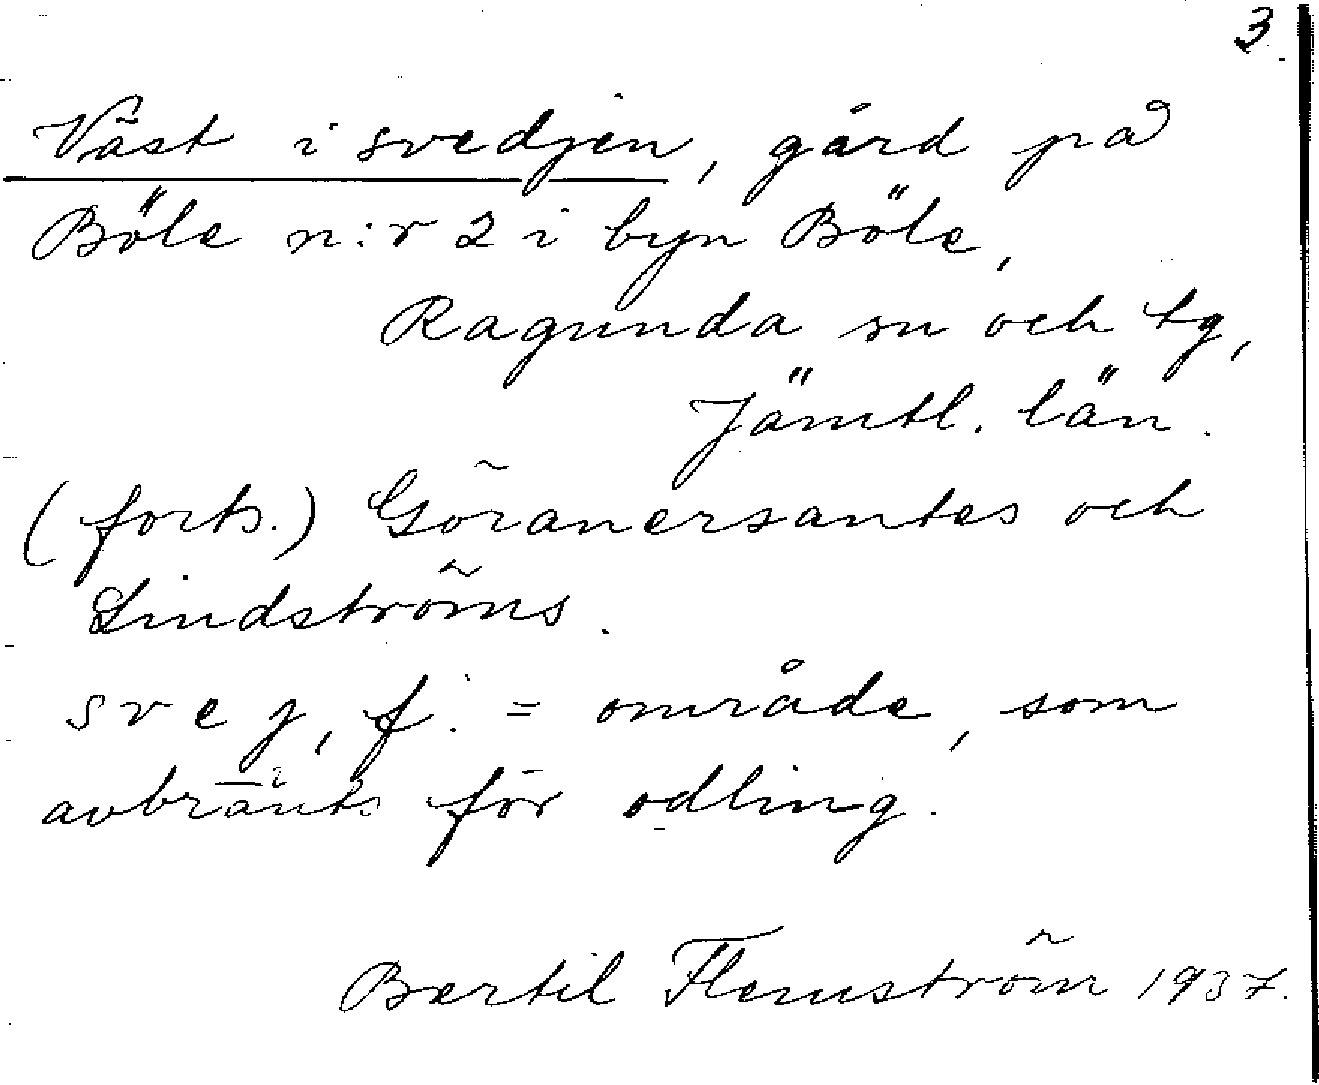 3
Väst i svedjen, gård på
Böle n:r 2 i byn Böle,
Ragunda sn och tg,
Jämtl. län.
(forts.) Göranersantes och
Lindströms.
svej, f. = område, som
avbränts för odling.
Bertil Flemström 1937.